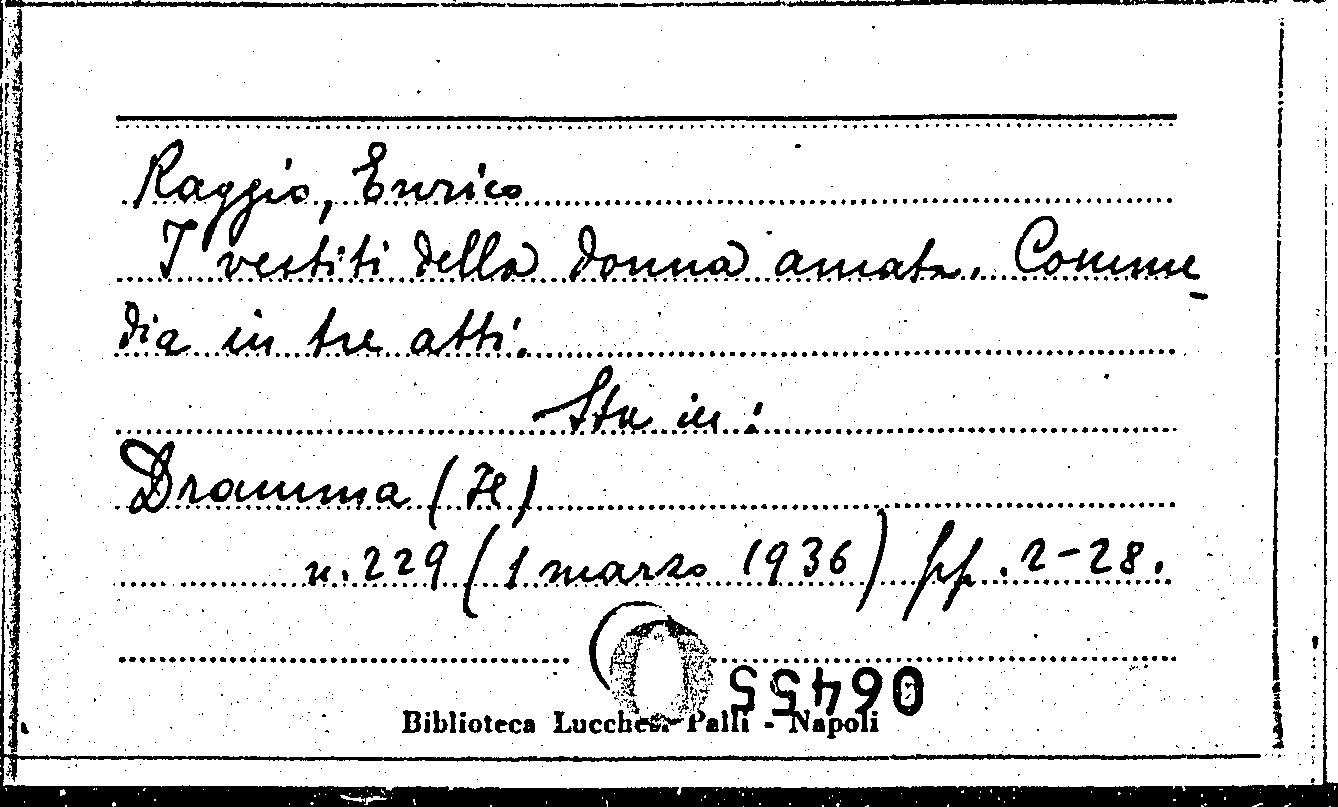 Raggio, Enrico
I vestiti della donna amata. Comme
dia in tre atti.
Sta in:
Dramma (Il)
n. 229 (1 marzo 1936) pp. 2-28.
06455
Biblioteca Lucchesi Palli - Napoli